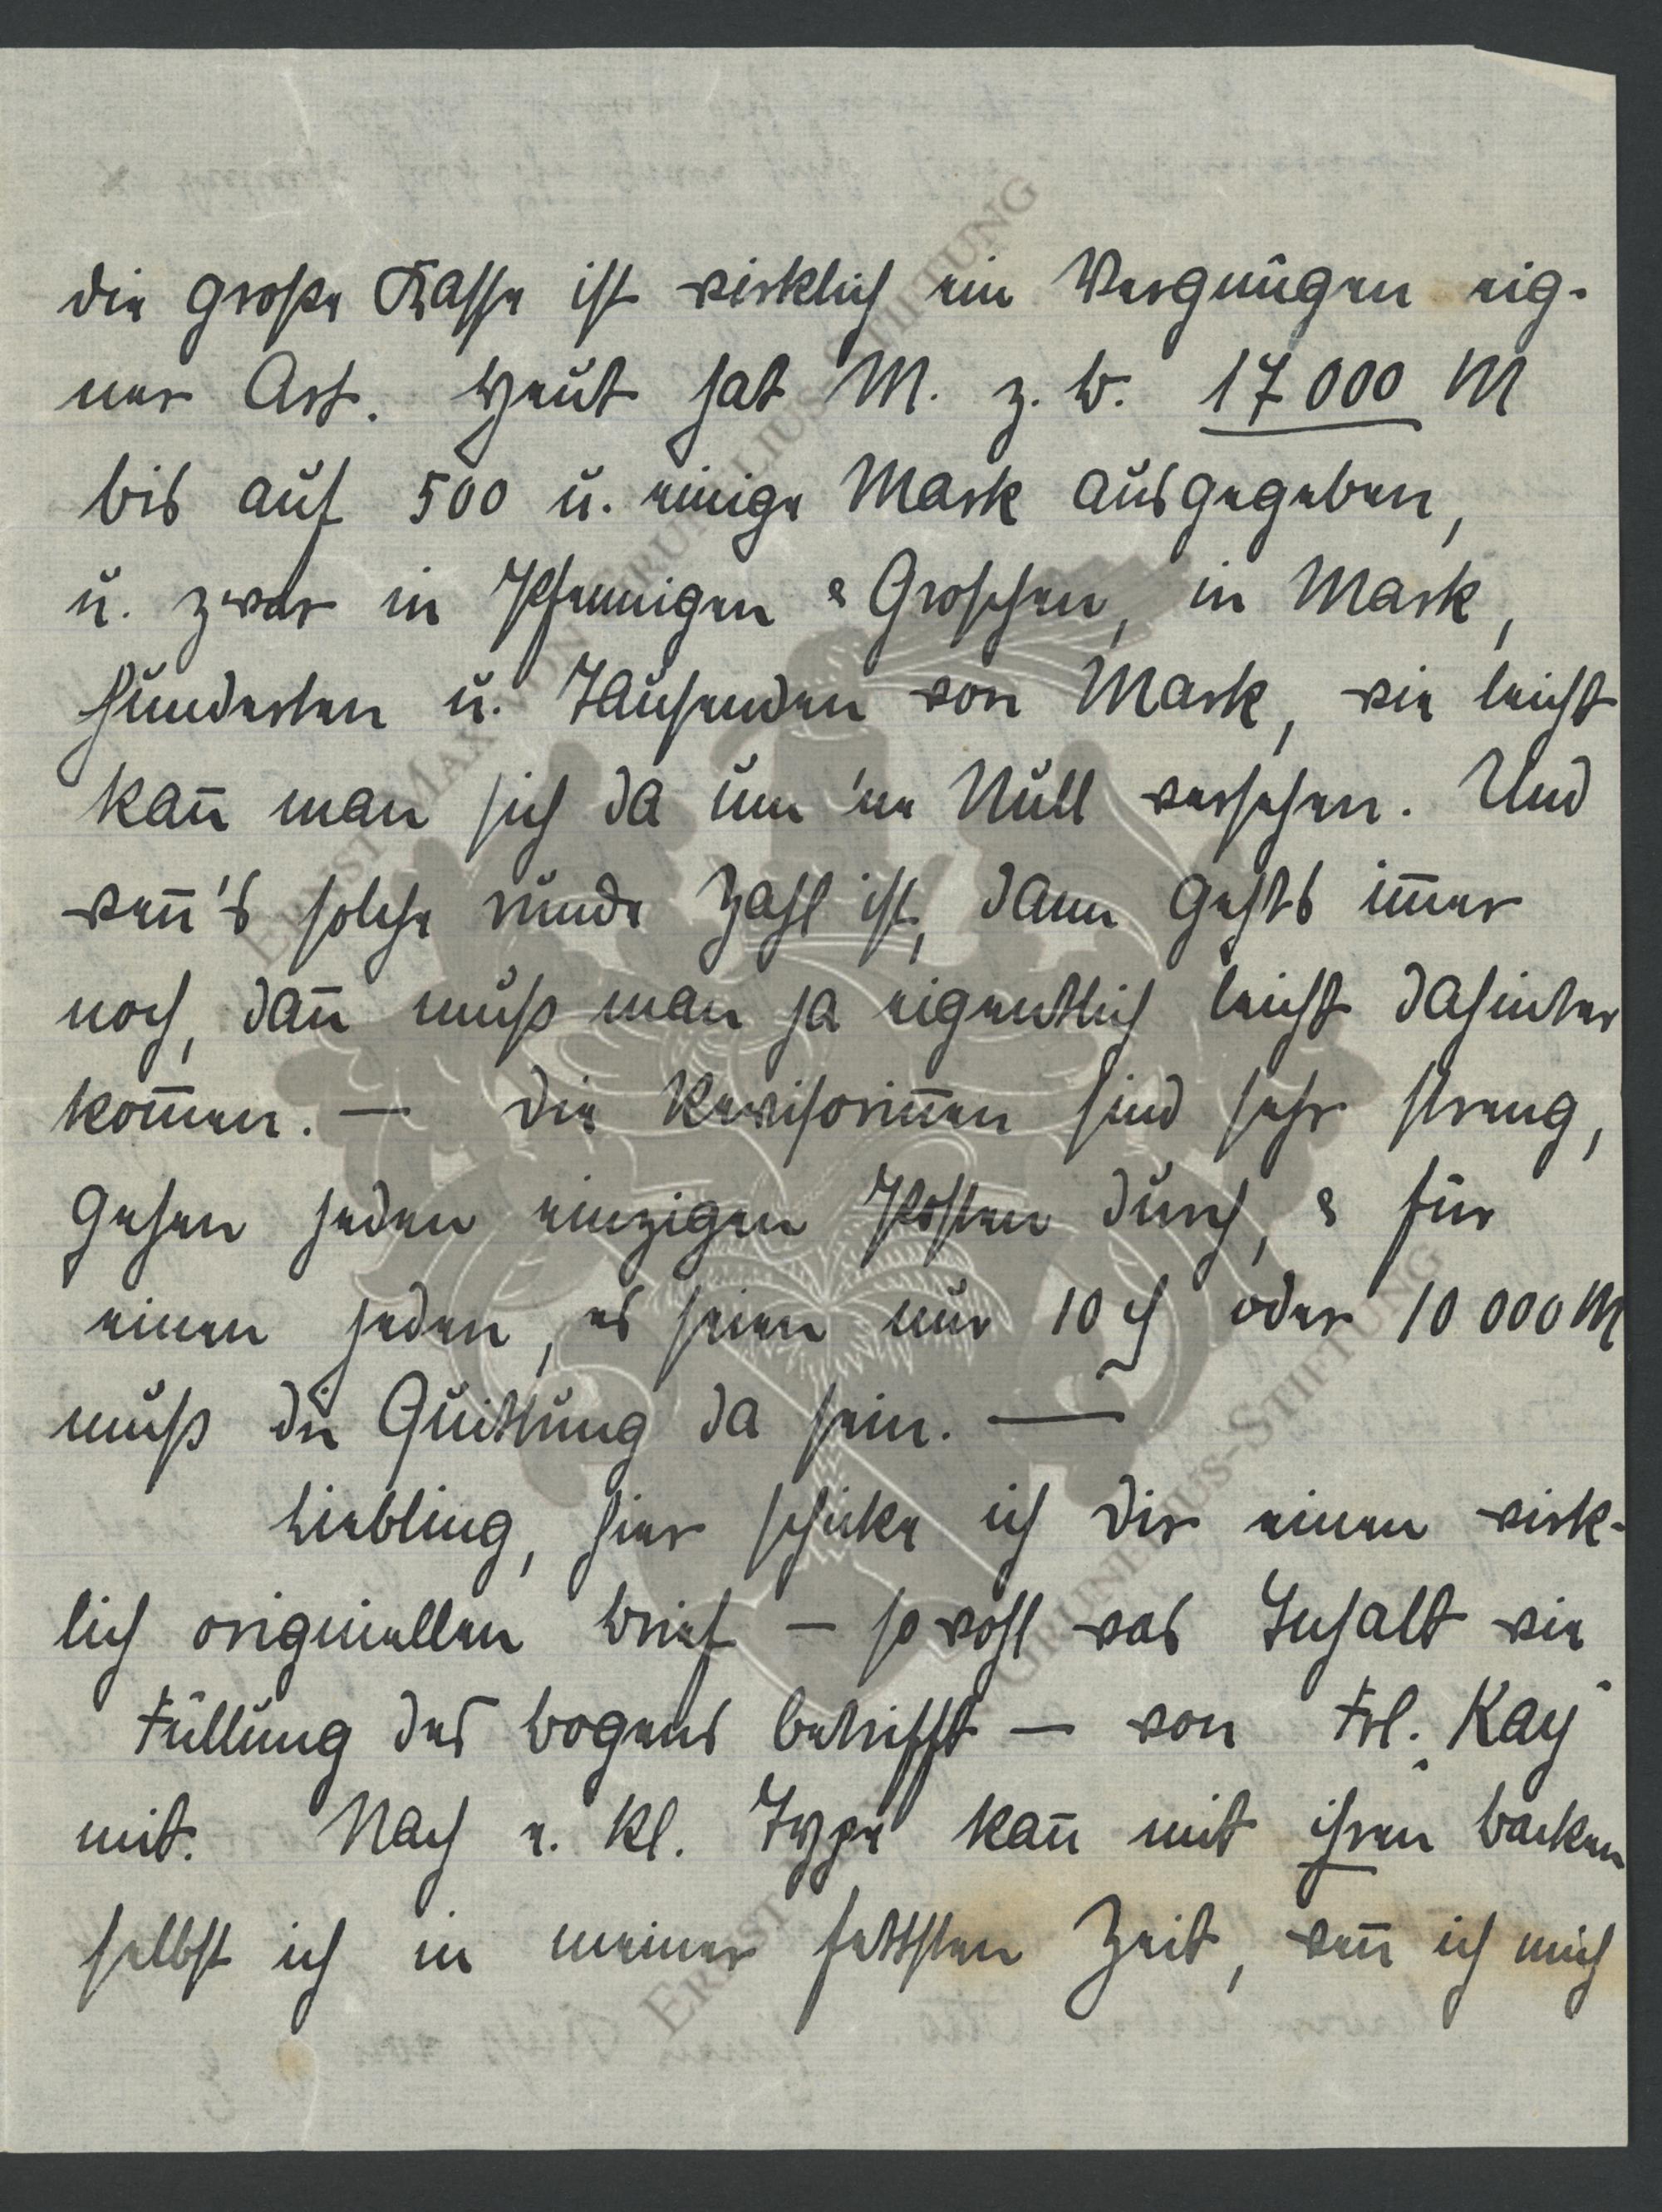 die große Kasse ist wirklich ein Vergnügen eig-
ner Art. Heut hat M. z. B. 17 000 M
bis auf 500 u. einige Mark ausgegeben,
u. zwar in Pfennigen & Groschen, in Mark,
Hunderten u. Tausenden von Mark, wie leicht
kan̄ man sich da um 'ne Null versehen. Und
wen̄'s solche runde Zahl ist, dann gehts im̄er
noch, dan̄ muß man ja eigentlich leicht dahinter
kom̄en. — Die Revisorin̄en sind sehr streng,
gehen jeden einzigen Posten durch, & für
einen jeden, es seien nur 10 ₰ oder 10 000 M
muß die Quittung da sein. —
Liebling, hier schicke ich Dir einen wirk-
lich originellen Brief — so wohl was Inhalt wie
Füllung des Bogens betrifft — von Frl. Kay
mit. Nach e. Kl. Type kan̄ mit ihren Backen
selbst ich in meiner fettsten Zeit, wen̄ ich mich
ERNST MAX VON GRUNELIUS-STIFTUNG
ERNST GRUNELIUS-STIFTUNG